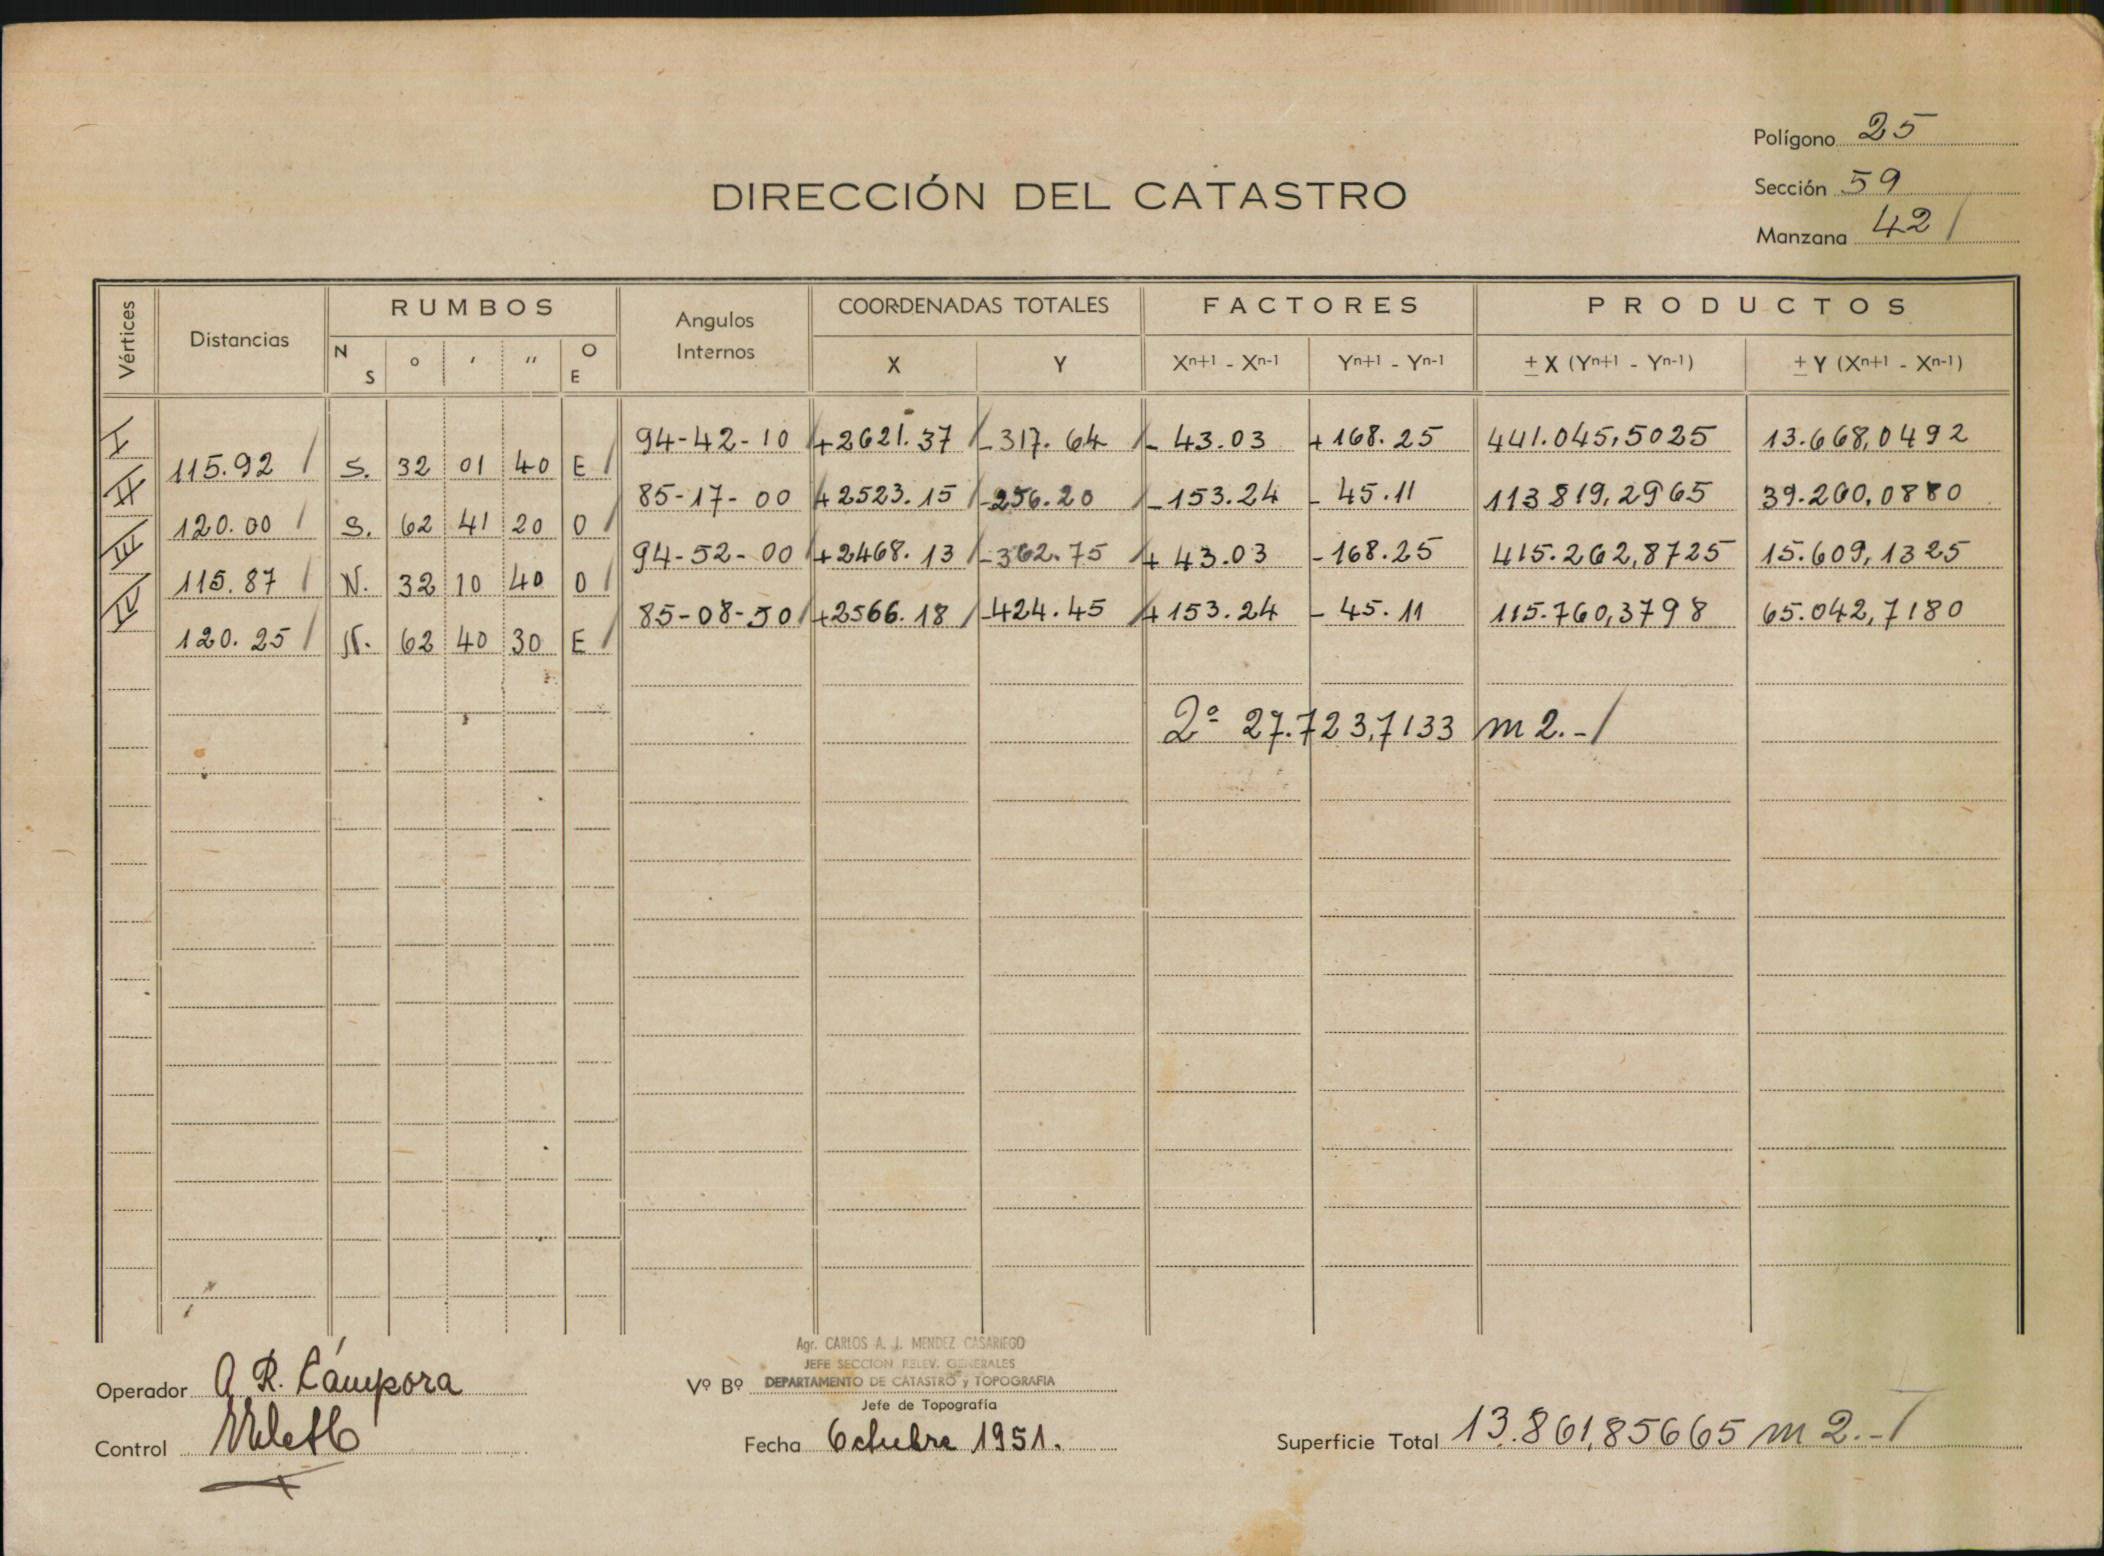 Polígono 25
Sección 59
Manzana 42 /
DIRECCIÓN DEL CATASTRO
Vértices Distancias RUMBOS Angulos Internos COORDENADAS TOTALES FACTORES PRODUCTOS
N S o ' " O E X Y Xn+1 - Xn-1 Yn+1 - Yn-1 ± X (Yn+1 - Yn-1) ± Y (Xn+1 - Xn-1)
I 94-42-10 +2621.37 / -317.64 / - 43.03 + 168.25 441.045,5025 13.668,0492
115.92 / S. 32 01 40 E /
II 85-17-00 +2523.15 / -256.20 / - 153.24 - 45.11 113819,2965 39.260,0880
120.00 / S. 62 41 20 O /
III 94-52-00 +2468.13 / -362.75 / + 43.03 - 168.25 415.262,8725 15.609,1325
115.87 / N. 32 10 40 O /
IV 85-08-50 / +2566.18 / -424.45 / + 153.24 - 45.11 115.760,3798 65.042,7180
120.25 / N. 62 40 30 E /
2º 27.723,7133 m2.- /
Agr. CARLOS A. J. MENDEZ CASARIEGO
JEFE SECCION RELEV. GENERALES
Operador A R. Cámpora Vº Bº DEPARTAMENTO DE CATASTRO y TOPOGRAFIA
Jefe de Topografía
Control Fecha Octubre 1951. Superficie Total 13.861,85665 m2.-